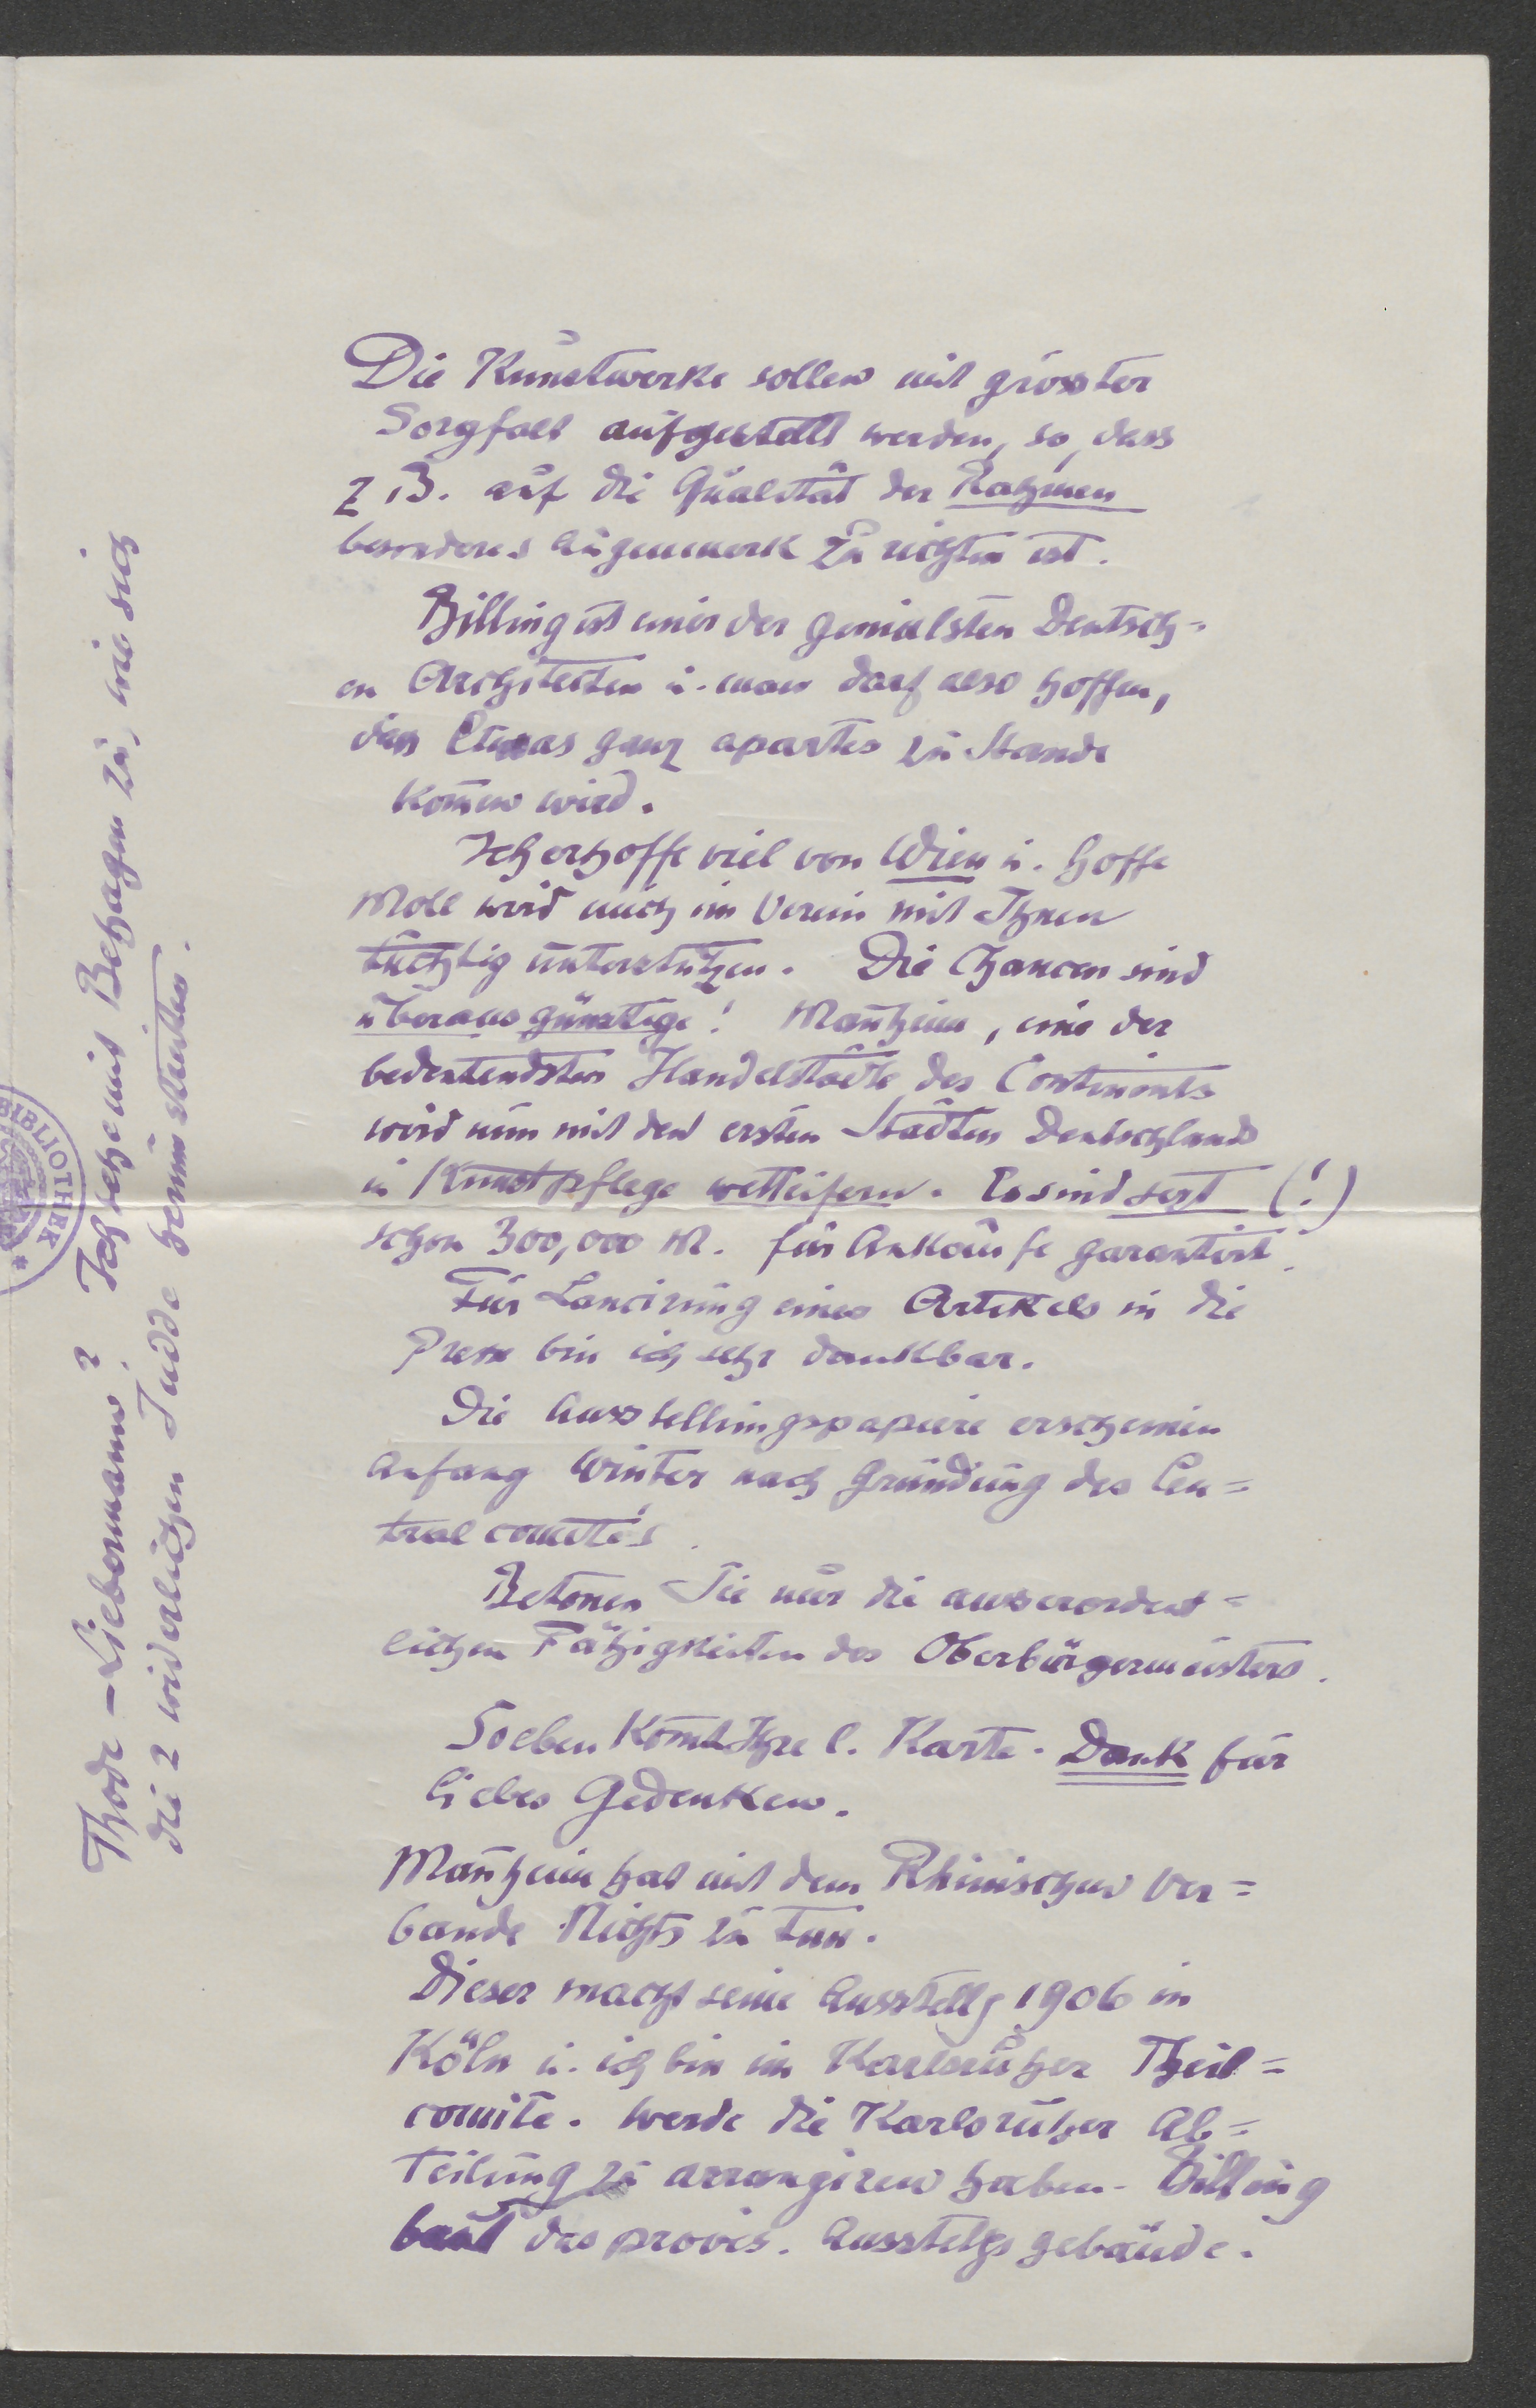 Die Kunstwerke sollen mit grösster
Sorgfalt aufgestellt werden, so, dass
z. B. auf die Qualität der Rahmen
besonderes Augenmerk zu richten ist.
Billing ist einer der genialsten Deutsch-
en Architecten u. man darf also hoffen,
dass Etwas ganz apartes zu Stande
kom̄en wird.
Ich erhoffe viel von Wien u. hoffe
Moll wird mich im Verein mit Ihnen
tüchtig unterstützen. Die Chancen sind
überaus günstige! Man̄heim, eine der
bedeutendsten Handelstädte des Continents
wird nun mit den ersten Städten Deutschlands
in Kunstpflege wetteifern. Es sind jetzt (!)
schon 300,000 M. für Ankäufe garantirt.
Für Lancirung eines Artikels in die
Presse bin ich sehr dankbar.
Die Ausstellungspapiere erscheinen
Anfang Winter nach Gründung des Cen=
tral comités.
Betonen Sie nur die ausserordent=
lichen Fähigkeiten des Oberbürgermeisters.
Soeben kom̄t Ihre l. Karte. Dank für
liebes Gedenken.
Man̄heim hat mit dem Rheinischen Ver=
bande Nichts zu tun.
Dieser macht seine Ausstellg 1906 in
Köln u. ich bin im Karlsruher Theil=
comite. Werde die Karlsruher Ab=
teilung zu arrangiren haben. Billing
baut das provis. Ausstellgs gebäude.
Thode – Liebermann? Ich sehe mit Behagen zu, wie sich
die 2 widerlichen Jud
BIBLIOTHEK